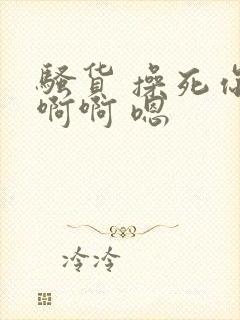 骚货 操死你
啊啊 嗯
冷冷